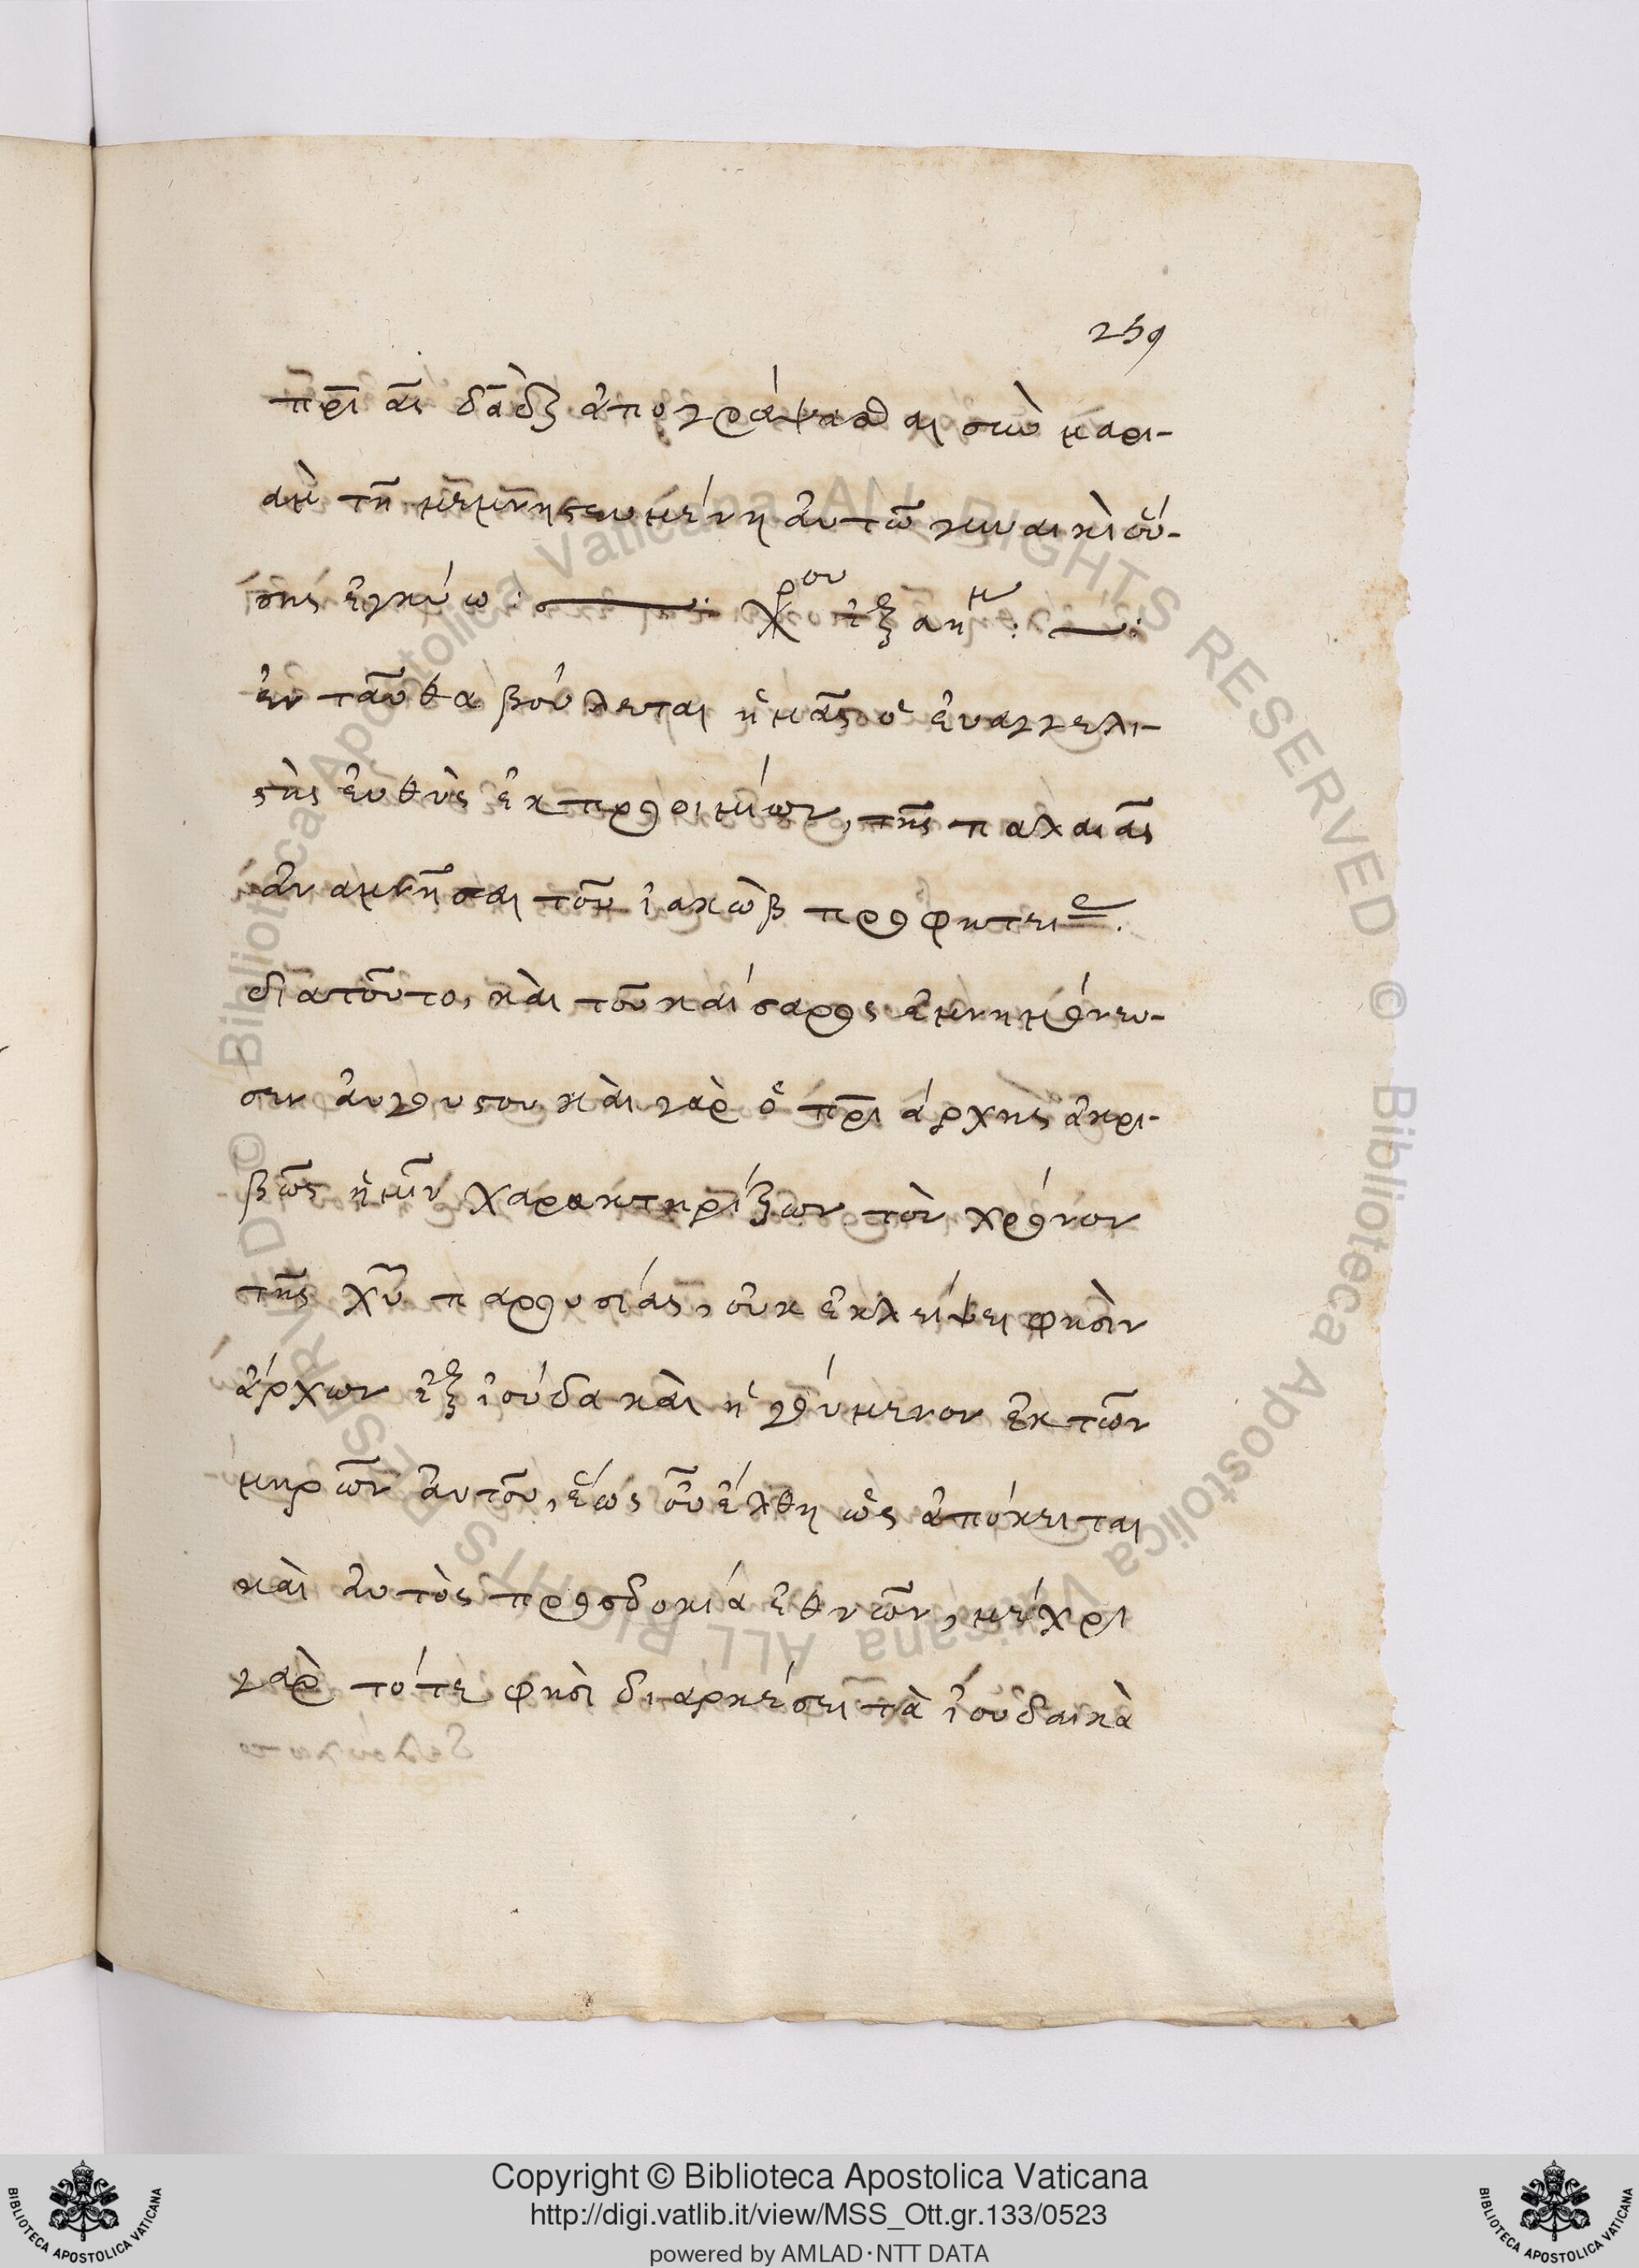 259
πρι̅ ᾶς δα̅δ̀ ἀπογράψασθαι σὺν μαρι-
ὰμ τῆ μεμνηστευμένη ἀυτῶ γυναικὶ οὔ-
σης ἐγκύω : χρου ἐξ αη μ :
ἐν ταῦθα βούλεται ἡμᾶς ὁ ἐυαγγελι-
στὴς ἐυθὺς ἐκ προοιμίων, τῆς παλαιᾶς
ἀναμνῆσαι τοῦ ἰακὼβ προφητεί.
διατοῦτο, καὶ τοῦ καίσαρος ἐμνημόνευ-
σεν ἀυγούστου καὶ γὰρ ὁ πρι̅ άρχὴς ἀκρι-
βῶς ἡμῖν χαρακτηρίζων τὸν χρόνον
τῆς χυ̅ παρουσίας, οὐκ ἐκλείψει φησὶν
ἄρχων ἐξ ἰούδα καὶ ἡγούμενον ἐκ τῶν
μηρῶν ἀυτοῦ, ἕως οὗ ἔλθη ὡς ἀπόκειται
καὶ ἀυτὸς προσδοκία ἐθνῶν, μέχρι
γὰρ τότε φησὶ διαρκέσει τὰ ἰουδαικὰ
Copyright © Biblioteca Apostolica Vaticana
http://digi.vatlib.it/view/MSS_Ott.gr.133/0523
powered by AMLAD·NTT DATA
BIBLIOTECA APOSTOLICA VATICANA
BIBLIOTECA APOSTOLICA VATICANA
© Biblioteca Apostolica Vaticana ALL RIGHTS RESERVED
© Biblioteca Apostolica Vaticana ALL RIGHTS RESERVED